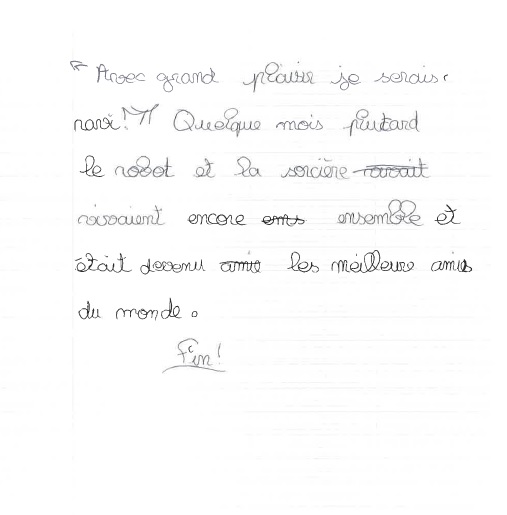 « Avec grand plaisir je serais
ravi! » Quelque mois plutard
le robot et la sorcière
vivaient encore ensemble et
était devenu amie les meilleure amis
du monde.
Fin!